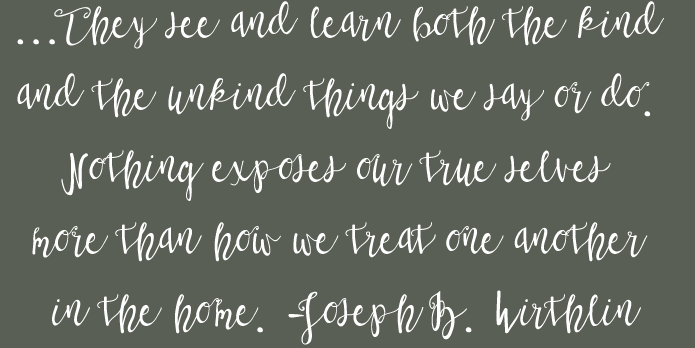 ...They see and learn both the kind
and the unkind things we say or do.
Nothing exposes our true selves
more than how we treat one another
in the home. -Joseph B. Wirthlin